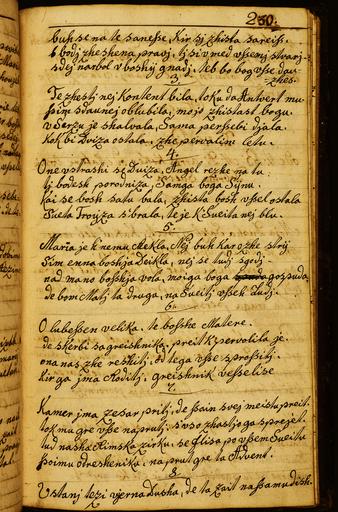 230.
buh se na te sanesse, kir si zhista sareiss.
s bodj zheshena pravj, tj si v med vssemj stvarj
sdej narbol v boshij gnadj, teb bo bog vsse dau
zhes.
3
Te zhestj nej kontent bila, toku da Antvert mu
ssim sdaunej oblubila, mojo zhistast bogu
v serzu je shalvala, Sama per sebi djala
kok bi Dviza ostala, zhe pervalim letu.
4.
One vstrashi se Duiza, Angel rezhe na tu
tj bodesh porodniza, Samga boga Sÿnu.
kai se bosh satu bala, zhista bosh vssel ostala
Sueta Troÿza s'brala, te je k Sueita nej blu.
5.
Maria je k nemu Rekla, Nej buh kar ozhe strÿ
Sim enna boshja Deikla, nej se tudj sgodj
nad mano bosshja vola, moiga boga gospuda,
de bom Matj ta druga, na Sueitj vsseh ludj.
6.
O lubessen velika, te bosshe Matere.
de skerbi sa greishnike, preit k pervolila je.
ona nas zhe reshitj, od lega vsse sprossitj.
kir ga jma Roditj, greishnik vesselise
7.
Kamer jma zesar pritj, de ssain svej meistu preit.
tok mu gre vsse naprutj, s'vso zhastjo ga sprejet.
tud nasha Rimska zirku, se glisa po vssem Sueitu
ssoimu odreshenika, naprut gre ta Advent.
8.
Vstanj tezi vjerna Dusha, de ta zait nassamudish.